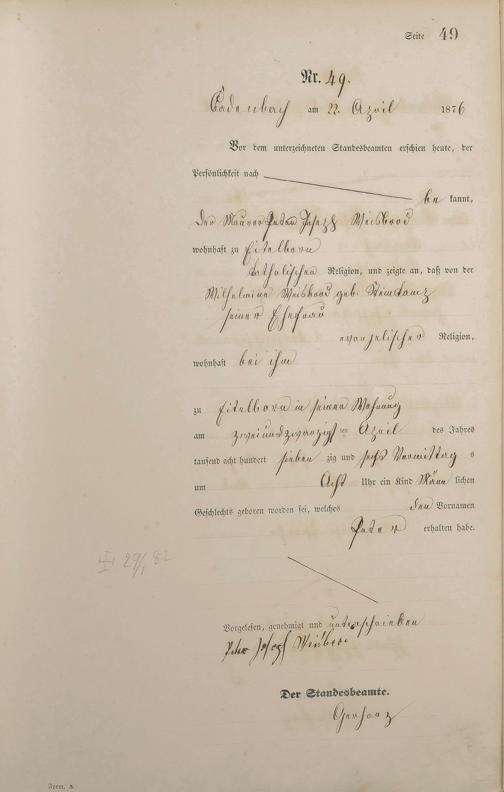 Seite 49
Nr. 49.
Cadenbach am 22. April 1876
Vor dem unterzeichneten Standesbeamten erschien heute, der
Persönlichkeit nach
be kannt,
der Maurer Peter Joseph Weisbrod
wohnhaft zu Eitelborn
katholischer Religion, und zeigte an, daß von der
Wilhelmine Weisbrod geb.
seiner Ehefrau
evangelischer Religion,
wohnhaft bei ihm
zu Eitelborn in seiner Wohnung
am zweiundzwanzigsten April des Jahres
tausend acht hundert sieben zig und sechs Vormittag s
um Acht Uhr ein Kind Männ lichen
Geschlechts geboren worden sei, welches den Vornamen
Peter erhalten habe.
29/1 82
Vorgelesen, genehmigt und unterschrieben
Peter Joseph Weisbrod
Der Standesbeamte.
Gerharz
Form. A.